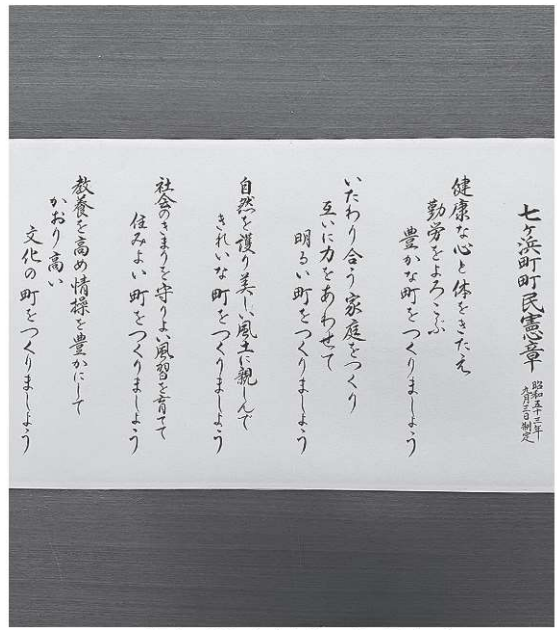 七ヶ浜町町民憲章
昭和五十三年
九月三日制定
健康な心と体をきたえ
勤労をよろこぶ
豊かな町をつくりましょう
いたわり合う家庭をつくり
互いに力をあわせて
明るい町をつくりましょう
自然を護り美しい風土に親しんで
きれいな町をつくりましょう
社会のきまりを守りよい風習を育てて
住みよい町をつくりましょう
教養を高め情操を豊かにして
かおり高い
文化の町をつくりましょう